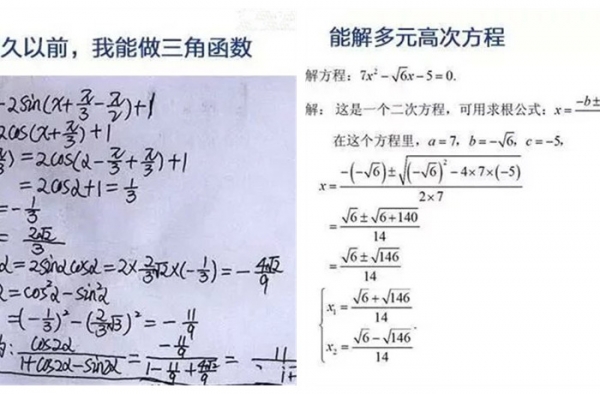 久以前，我能做三角函数
-2sin(x+π/3-π/2)+1
2cos(x+π/3)+1
π/3)=2cos(2-π/3+π/3)+1
=2cos2+1=1/3
=-1/3
=2√2/3
α=2sinαcosα=2×2/3√2×(-1/3)=-4√2/9
α=cos²α-sin²α
=(-1/3)²-(2/3√3)²=-11/9
为:cos2α/1+cos2α-sin2α=-11/9/1-11/9+4√2/9=11/1+
能解多元高次方程
解方程：7x²-√6x-5=0.
解： 这是一个二次方程，可用求根公式：x=-b±
在这个方程里，a=7，b=-√6，c=-5，
x=-(-√6)±√((-√6)²-4×7×(-5))/2×7
=√6±√6+140/14
=√6±√146/14
x₁=√6+√146/14
x₂=√6-√146/14.